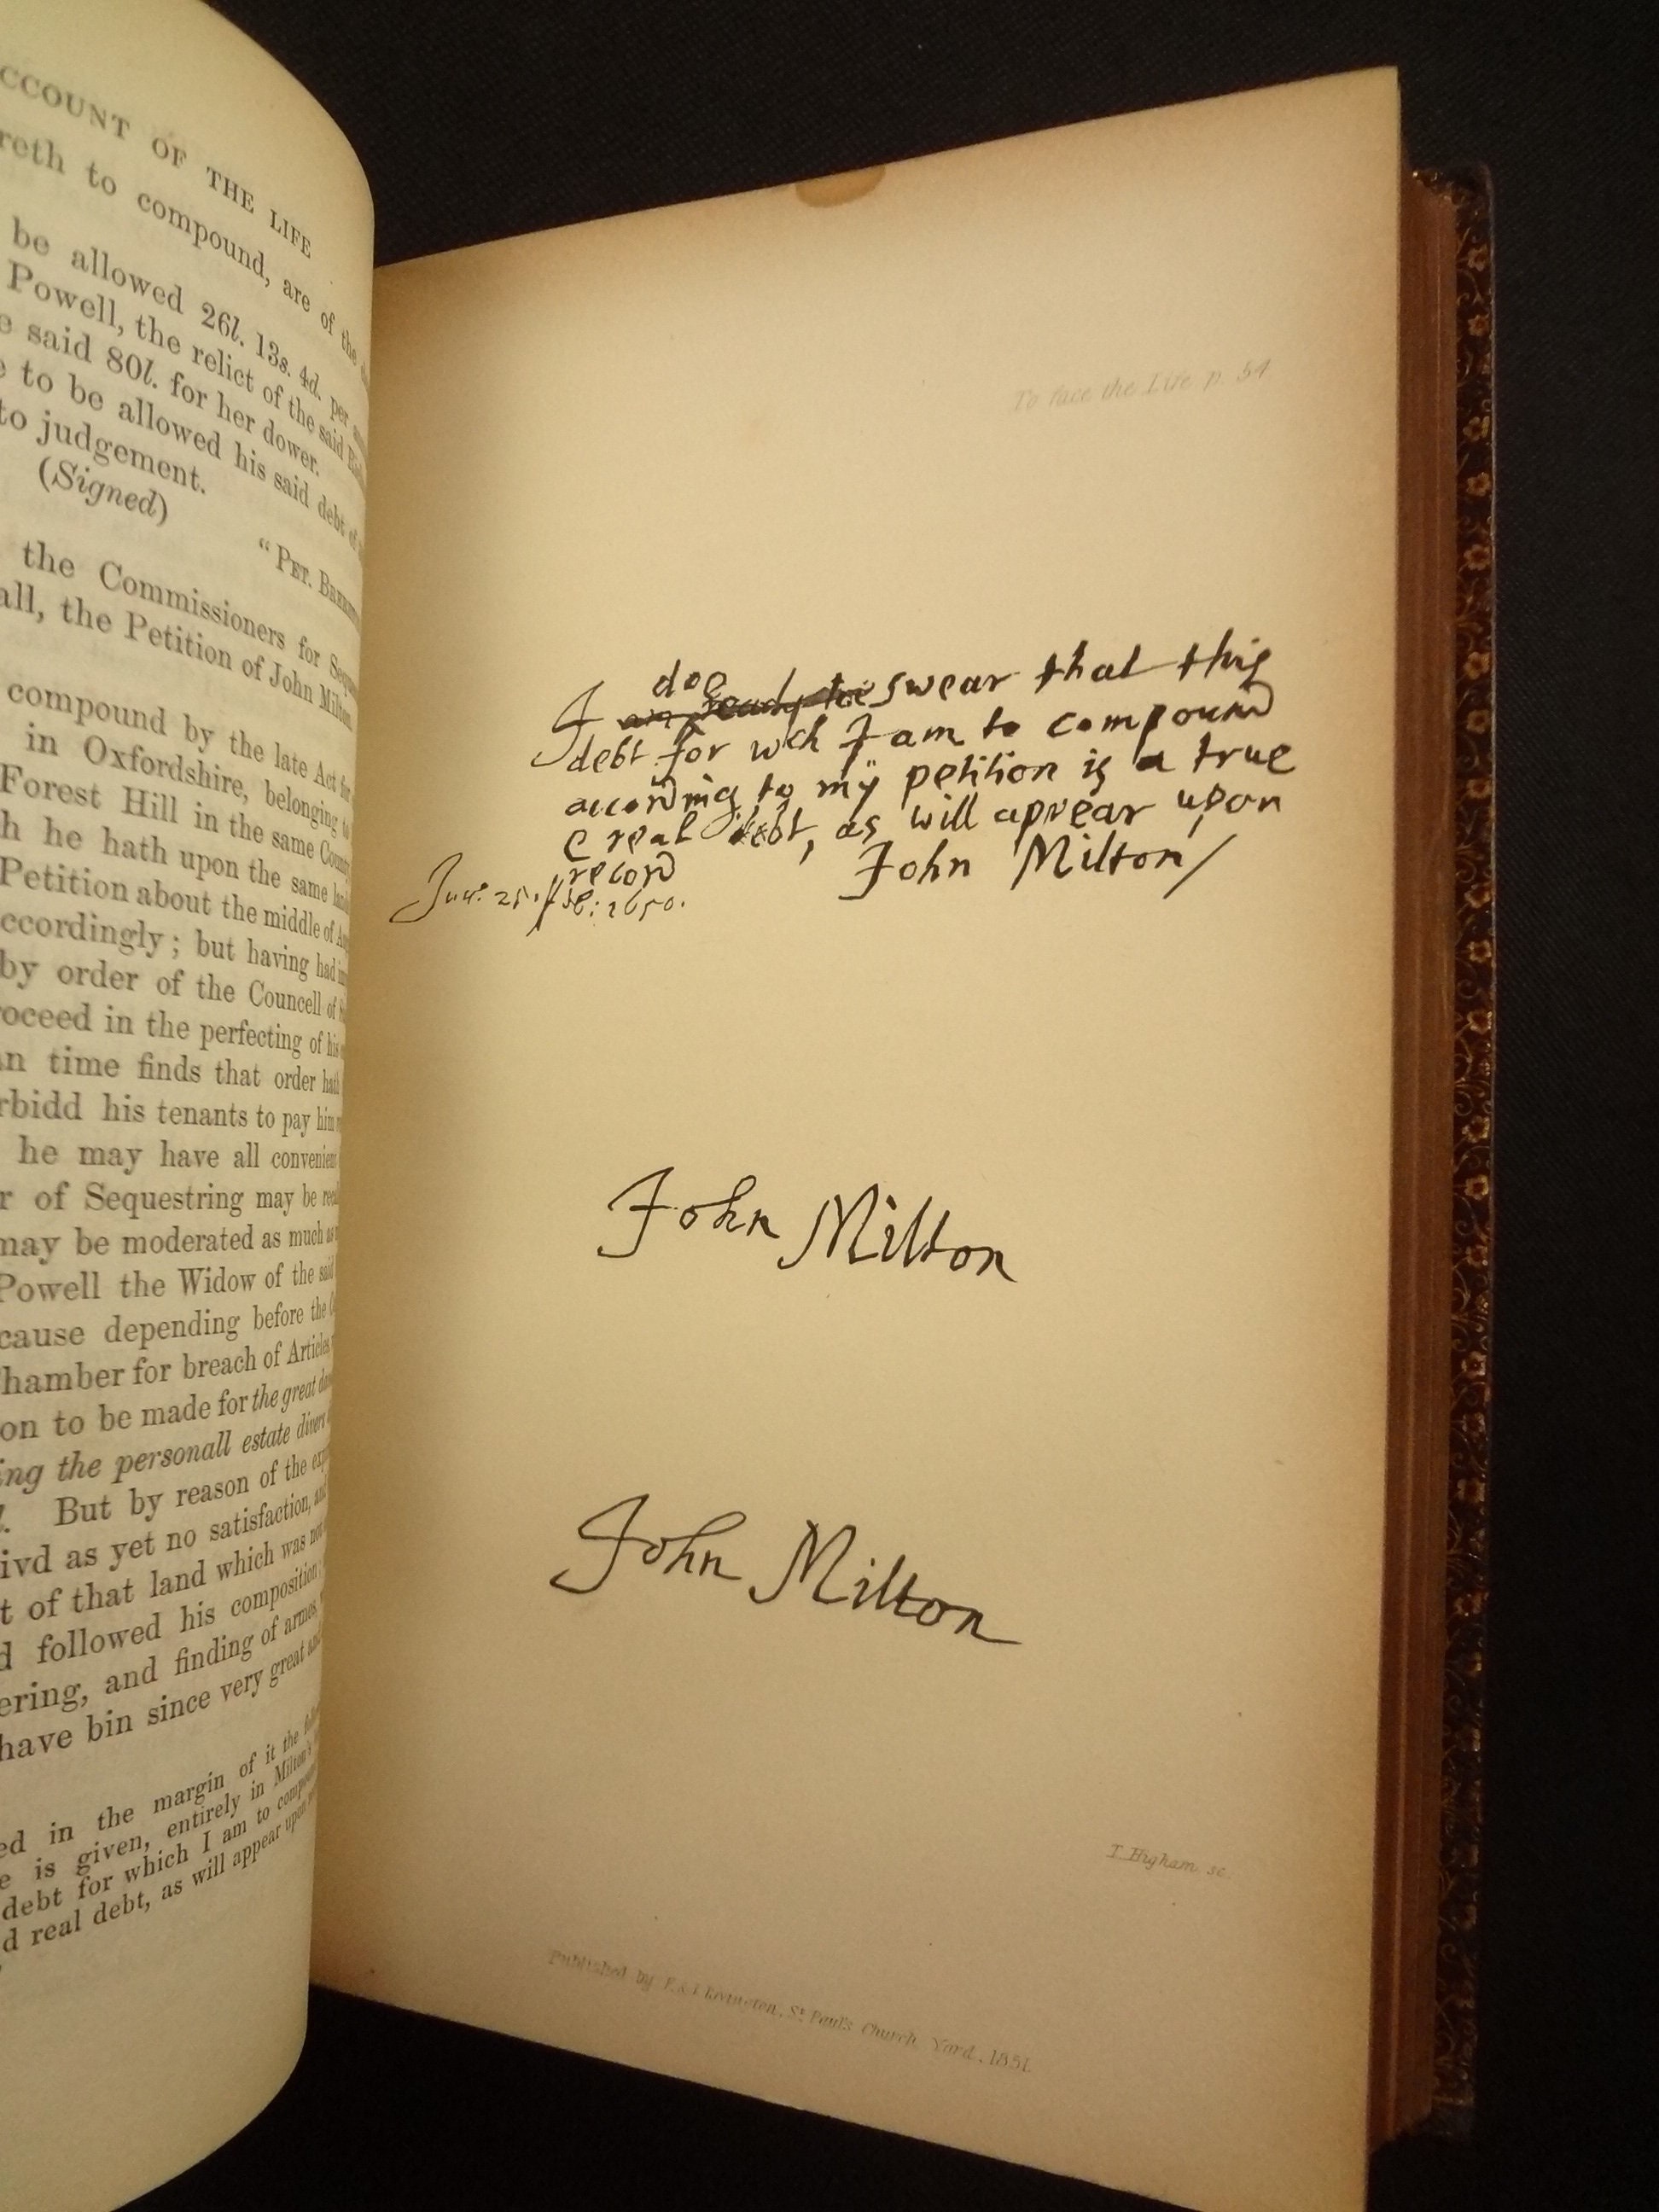 CCOUNT OF THE LIFE
reth to compound, are of the
be allowed 26l. 13s. 4d. per
Powell, the relict of the said
e said 80l. for her dower.
e to be allowed his said debt of
to judgement.
(Signed)
"PET.
the Commissioners for
all, the Petition of John Milton.
compound by the late Act for
in Oxfordshire, belonging to
Forest Hill in the same County
h he hath upon the same
Petition about the middle of
ccordingly; but having had
by order of the Councell of
roceed in the perfecting of his
an time finds that order hath
rbidd his tenants to pay him
he may have all convenient
r of Sequestring may be
may be moderated as much as
Powell the Widow of the said
cause depending before the
Chamber for breach of Articles
on to be made for the great
ing the personall estate divers
l. But by reason of the
ivd as yet no satisfaction, and
t of that land which was not
d followed his composition
ering, and finding of armes
have bin since very great and
ed in the margin of it the
e is given, entirely in Milton's
debt for which I am to
d real debt, as will appear upon
To face the Life p. 54
doe
I am ready to swear that this
debt for wch I am to compound
according to my petition is a true
e real debt, as will appear upon
record
John Milton/
1650.
John Milton
John Milton
I. Bigham sc.
Published by F. & J. Rivington, St. Paul's Church Yard, 1851.